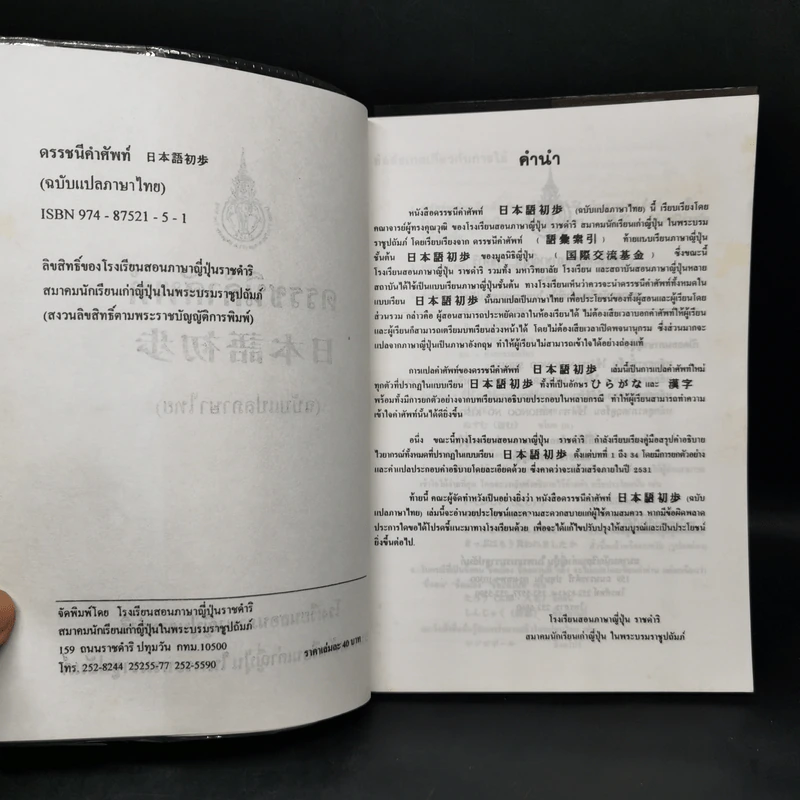 ดรรชนีคำศัพท์ 日本語初歩
(ฉบับแปลภาษาไทย)
ISBN 974 - 87521 - 5 - 1
ลิขสิทธิ์ของโรงเรียนสอนภาษาญี่ปุ่นราชดำริ
สมาคมนักเรียนเก่าญี่ปุ่นในพระบรมราชูปถัมภ์
(สงวนลิขสิทธิ์ตามพระราชบัญญัติการพิมพ์)
จัดพิมพ์โดย โรงเรียนสอนภาษาญี่ปุ่นราชดำริ
สมาคมนักเรียนเก่าญี่ปุ่นในพระบรมราชูปถัมภ์
159 ถนนราชดำริ ปทุมวัน กทม.10500
โทร. 252-8244 25255-77 252-5590
ราคาเล่มละ 40 บาท
คำนำ
หนังสือดรรชนีคำศัพท์ 日本語初歩 (ฉบับแปลภาษาไทย) นี้ เรียบเรียงโดย
คณาจารย์ผู้ทรงคุณวุฒิ ของโรงเรียนสอนภาษาญี่ปุ่น ราชดำริ สมาคมนักเรียนเก่าญี่ปุ่น ในพระบรม
ราชูปถัมภ์ โดยเรียบเรียงจาก ดรรชนีคำศัพท์ ( 語彙索引 ) ท้ายแบบเรียนภาษาญี่ปุ่น
ชั้นต้น 日本語初歩 ของมูลนิธิญี่ปุ่น ( 国際交流基金 ) ซึ่งขณะนี้
โรงเรียนสอนภาษาญี่ปุ่น ราชดำริ รวมทั้ง มหาวิทยาลัย โรงเรียน และสถาบันสอนภาษาญี่ปุ่นหลาย
สถาบันได้ใช้เป็นแบบเรียนภาษาญี่ปุ่นชั้นต้น ทางโรงเรียนเห็นว่าควรจะนำดรรชนีคำศัพท์ทั้งหมดใน
แบบเรียน 日本語初歩 นี้มาแปลเป็นภาษาไทย เพื่อประโยชน์ของทั้งผู้สอนและผู้เรียนโดย
ส่วนรวม กล่าวคือ ผู้สอนสามารถประหยัดเวลาในห้องเรียนได้ ไม่ต้องเสียเวลาบอกคำศัพท์ให้ผู้เรียน
และผู้เรียนก็สามารถเตรียมบทเรียนล่วงหน้าได้ โดยไม่ต้องเสียเวลาเปิดพจนานุกรม ซึ่งส่วนมากจะ
แปลจากภาษาญี่ปุ่นเป็นภาษาอังกฤษ ทำให้ผู้เรียนไม่สามารถเข้าใจได้อย่างถ่องแท้
การแปลคำศัพท์ของดรรชนีคำศัพท์ 日本語初歩 เล่มนี้เป็นการแปลคำศัพท์ใหม่
ทุกตัวที่ปรากฏในแบบเรียน 日本語初歩 ทั้งที่เป็นอักษร ひらがな และ 漢字
พร้อมทั้งมีการยกตัวอย่างจากบทเรียนมาอธิบายประกอบในหลายกรณี ทำให้ผู้เรียนสามารถทำความ
เข้าใจคำศัพท์นั้นได้ดียิ่งขึ้น
อนึ่ง ขณะนี้ทางโรงเรียนสอนภาษาญี่ปุ่น ราชดำริ กำลังเรียบเรียงคู่มือสรุปคำอธิบาย
ไวยากรณ์ทั้งหมดที่ปรากฏในแบบเรียน 日本語初歩 ตั้งแต่บทที่ 1 ถึง 34 โดยมีการยกตัวอย่าง
และคำแปลประกอบคำอธิบายโดยละเอียดด้วย ซึ่งคาดว่าจะแล้วเสร็จภายในปี 2531
ท้ายนี้ คณะผู้จัดทำหวังเป็นอย่างยิ่งว่า หนังสือดรรชนีคำศัพท์ 日本語初歩 (ฉบับ
แปลภาษาไทย) เล่มนี้จะอำนวยประโยชน์และความสะดวกสบายแก่ผู้ใช้ตามสมควร หากมีข้อผิดพลาด
ประการใดขอได้โปรดชี้แนะมาทางโรงเรียนด้วย เพื่อจะได้แก้ไขปรับปรุงให้สมบูรณ์และเป็นประโยชน์
ยิ่งขึ้นต่อไป.
โรงเรียนสอนภาษาญี่ปุ่น ราชดำริ
สมาคมนักเรียนเก่าญี่ปุ่น ในพระบรมราชูปถัมภ์